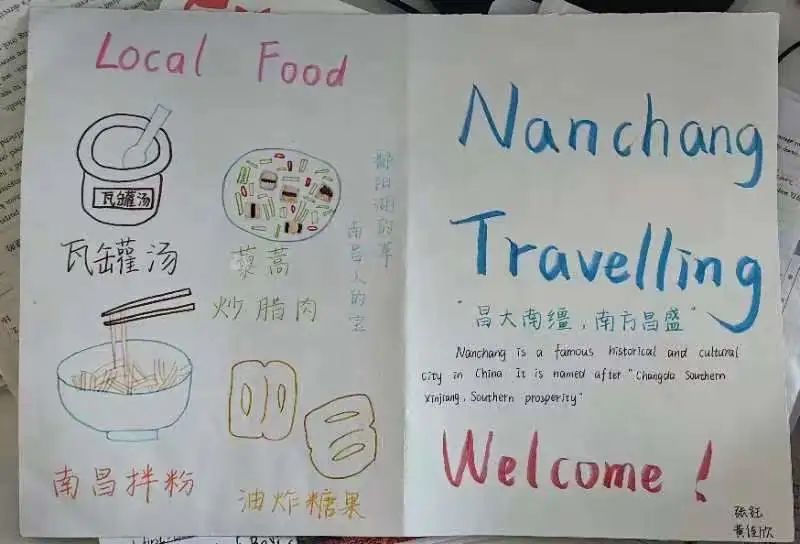 Local Food
瓦罐汤
瓦罐汤
藜蒿
炒腊肉
鄱阳湖的草
南昌人的宝
南昌拌粉
油炸糖果
Nanchang
Travelling
"昌大南缰,南方昌盛"
Nanchang is a famous historical and cultural
city in China It is named after "Changda Southern
xinjiang, Southern prosperity"
Welcome!
张钰
黄佳欣